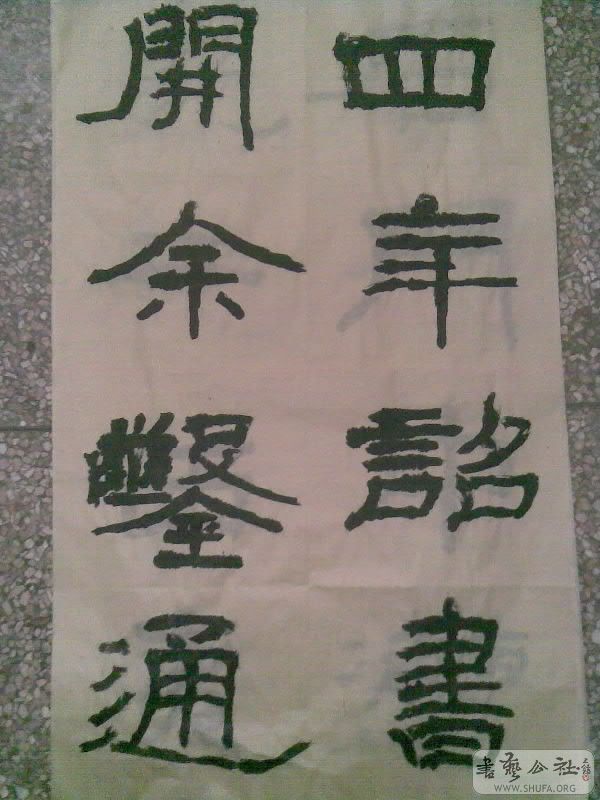 四年詔書
開余鑿通
書藝公社
WWW.SHUFA.ORG